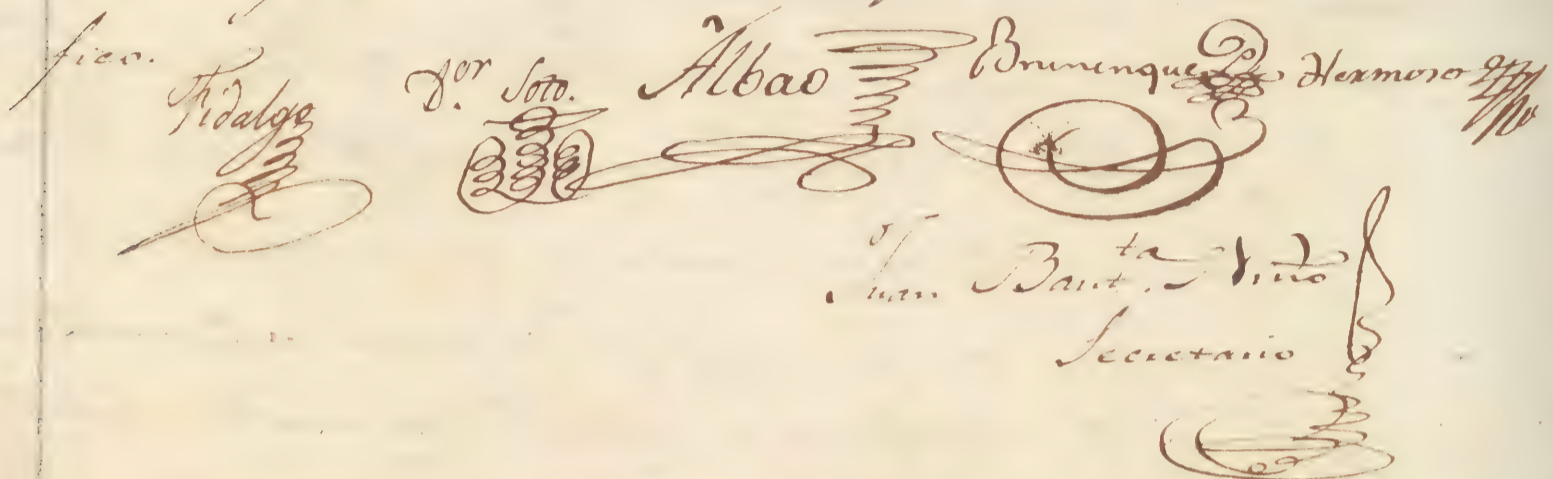 fico.
Fidalgo Dor. Soto. Albao Brunenque Hermoso
Juan Bautta.
Secretario